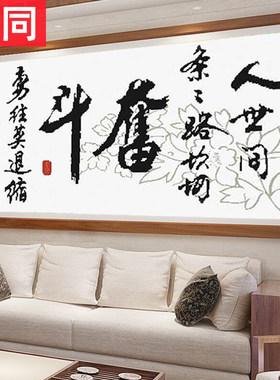 同
人世间
条々路坎坷
奮斗
勇往莫退缩